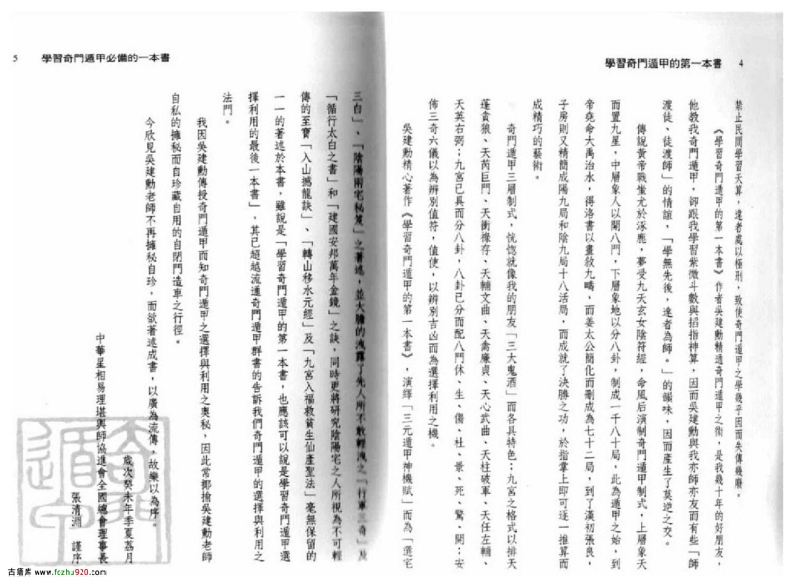 學習奇門遁甲的第一本書 4
禁止民間學習天算，違者處以極刑，致使奇門遁甲之學幾乎因而失傳幾廢。
《學習奇門遁甲的第一本書》作者吳建勳精通奇門遁甲之術，是我幾十年的好朋友，
他教我奇門遁甲，卻跟我學習紫微斗數與掐指神算，因而吳建勳與我亦師亦友而有些「師
渡徒、徒渡師」的情誼，「學無先後，達者為師。」的韻味，因而產生了莫逆之交。
傳說黃帝戰蚩尤於涿鹿，夢受九天玄女陰符經，命風后演制奇門遁甲制式，上層象天
而置九星，中層象人以開八門，下層象地以分八卦，制成一千八十局，此為遁甲之始，到
帝堯命大禹治水，得洛書以畫敘九疇，而姜太公簡化而刪成為七十二局，到了漢初張良，
子房則又精簡成陽九局和陰九局十八活局，而成就了決勝之功，於指掌上即可逐一推算而
成精巧的藝術。
奇門遁甲三層制式，恍惚就像我的朋友「三大鬼酒」而各具特色；九宮之格式以排天
蓬貪狼、天芮巨門、天衝祿存、天輔文曲、天禽廉貞、天心武曲、天柱破軍、天任左輔、
天英右弼；九宮已具而分八卦，八卦已分而配八門休、生、傷、杜、景、死、驚、開；安
佈三奇六儀以為辨別值符，值使，以辨別吉凶而為選擇利用之機。
吳建勳精心著作《學習奇門遁甲的第一本書》，演繹「三元遁甲神機賦」而為「選宅
5 學習奇門遁甲必備的一本書
三白」，「陰陽兩宅秘笈」之著述，並大膽的洩露了先人所不敢輕洩之「行軍三奇」及
「循行太白之書」和「建國安邦萬年金鏡」之訣，同時更將研究陰陽宅之人所視為不可輕
傳的至寶「入山撼龍訣」、「轉山移水元經」及「九宮入福救貧生仙產聖法」毫無保留的
一一的著述於本書，雖說是「學習奇門遁甲的第一本書，也應該可以說是學習奇門遁甲選
擇利用的最後一本書」，其已超越流通奇門遁甲群書的告訴我們奇門遁甲的選擇與利用之
法門。
我因吳建勳傳授奇門遁甲而知奇門遁甲之選擇與利用之奧秘，因此常揶揄吳建勳老師
自私的擁秘而自珍藏自用的自閉門造車之行徑。
今欣見吳建勳老師不再擁秘自珍，而欲著述成書，以廣為流傳，故樂以為序。
歲次癸未年季夏荔月
中華星相易理堪輿師協進會全國總會理事長
張清淵 謹序
古籍库 www.fczhu920.com